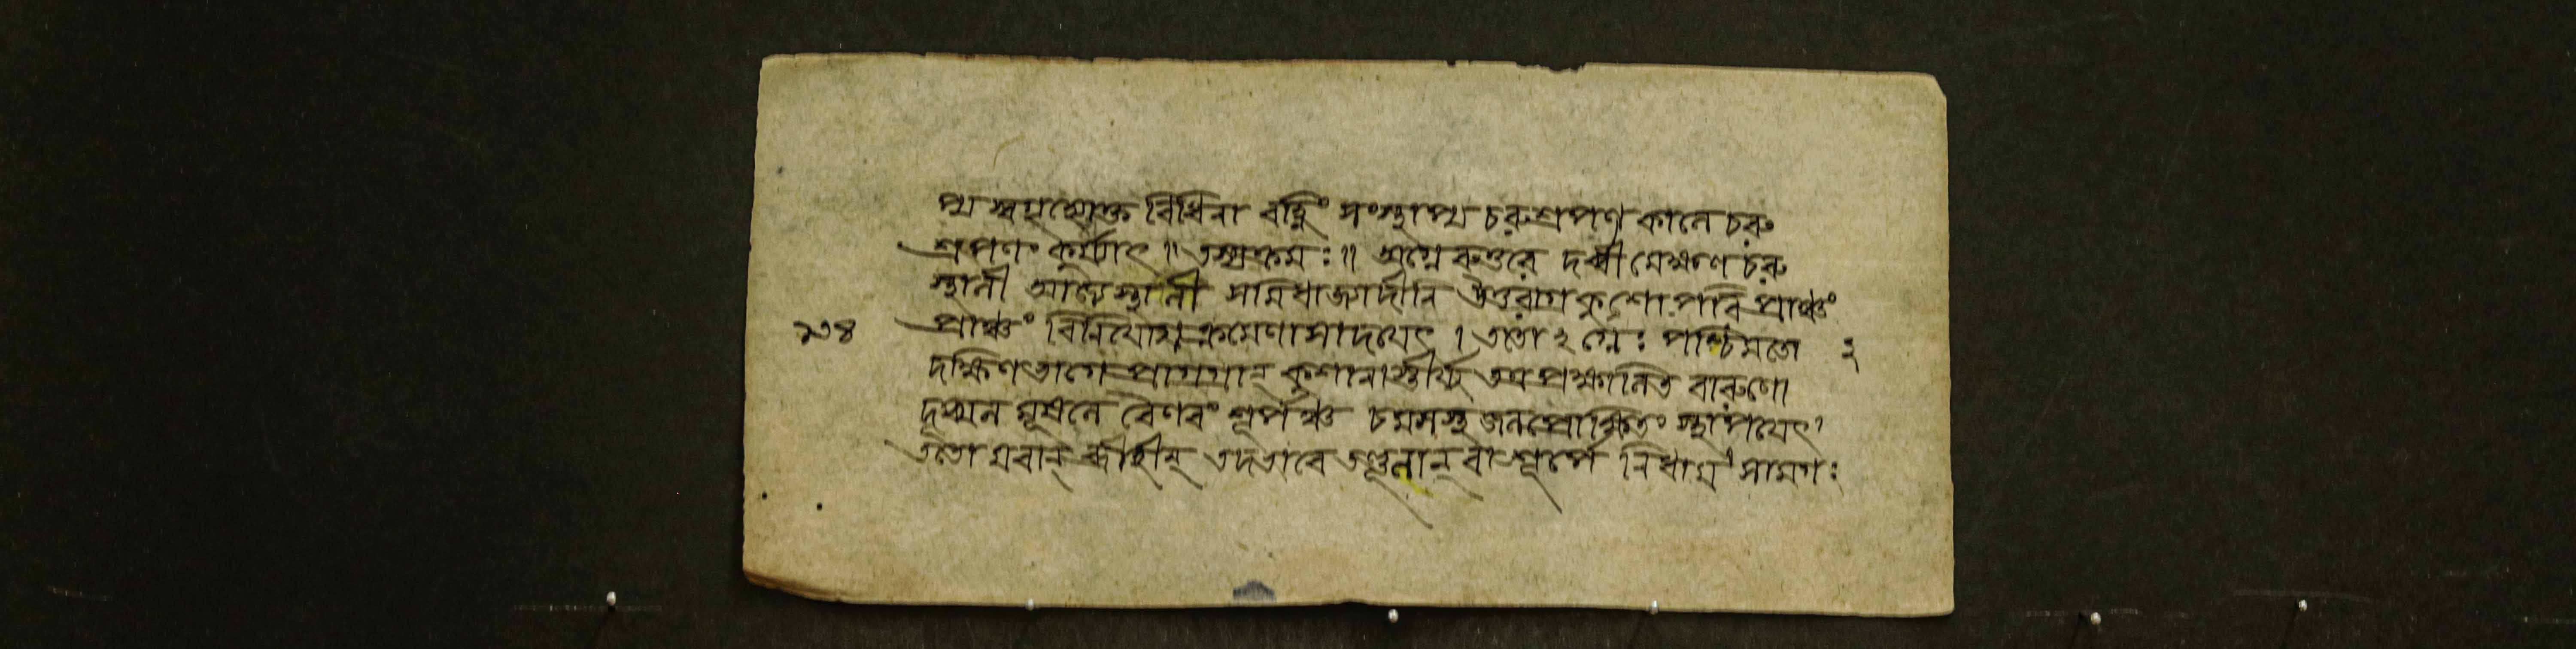 প্য স্বগৃহ্যোক্ত বিধিনা বহ্নিং সংস্থাপ্য চরুশ্রপণ কালে চরু
শ্রপণং কুর্য্যাৎ ॥ তৎক্রমঃ ॥ অগ্নেরুত্তরে দর্ব্বী মেক্ষণে চরু
স্থালী আজ্যস্থালী উত্তরাগ্র কুশোপরি প্রাঞ্চং
প্রাঞ্চং বিনিয়োগ ক্রমেণাসাদয়েৎ । ততো ঽগ্নেঃ পশ্চিমতো ২
দক্ষিণভাগে প্রাগগ্রান্ কুশানাস্তীর্য্য তত্র প্রক্ষালিত বারুণো
দূখল মূষলে বৈণবং শূর্পঞ্চ চমসস্থ জলপ্রোক্ষিতং স্থাপয়েৎ ।
ততো যবান্ ব্রীহীন্ তদভাবে তণ্ডুলান্ বা শূর্পে নিধায় সামগঃ